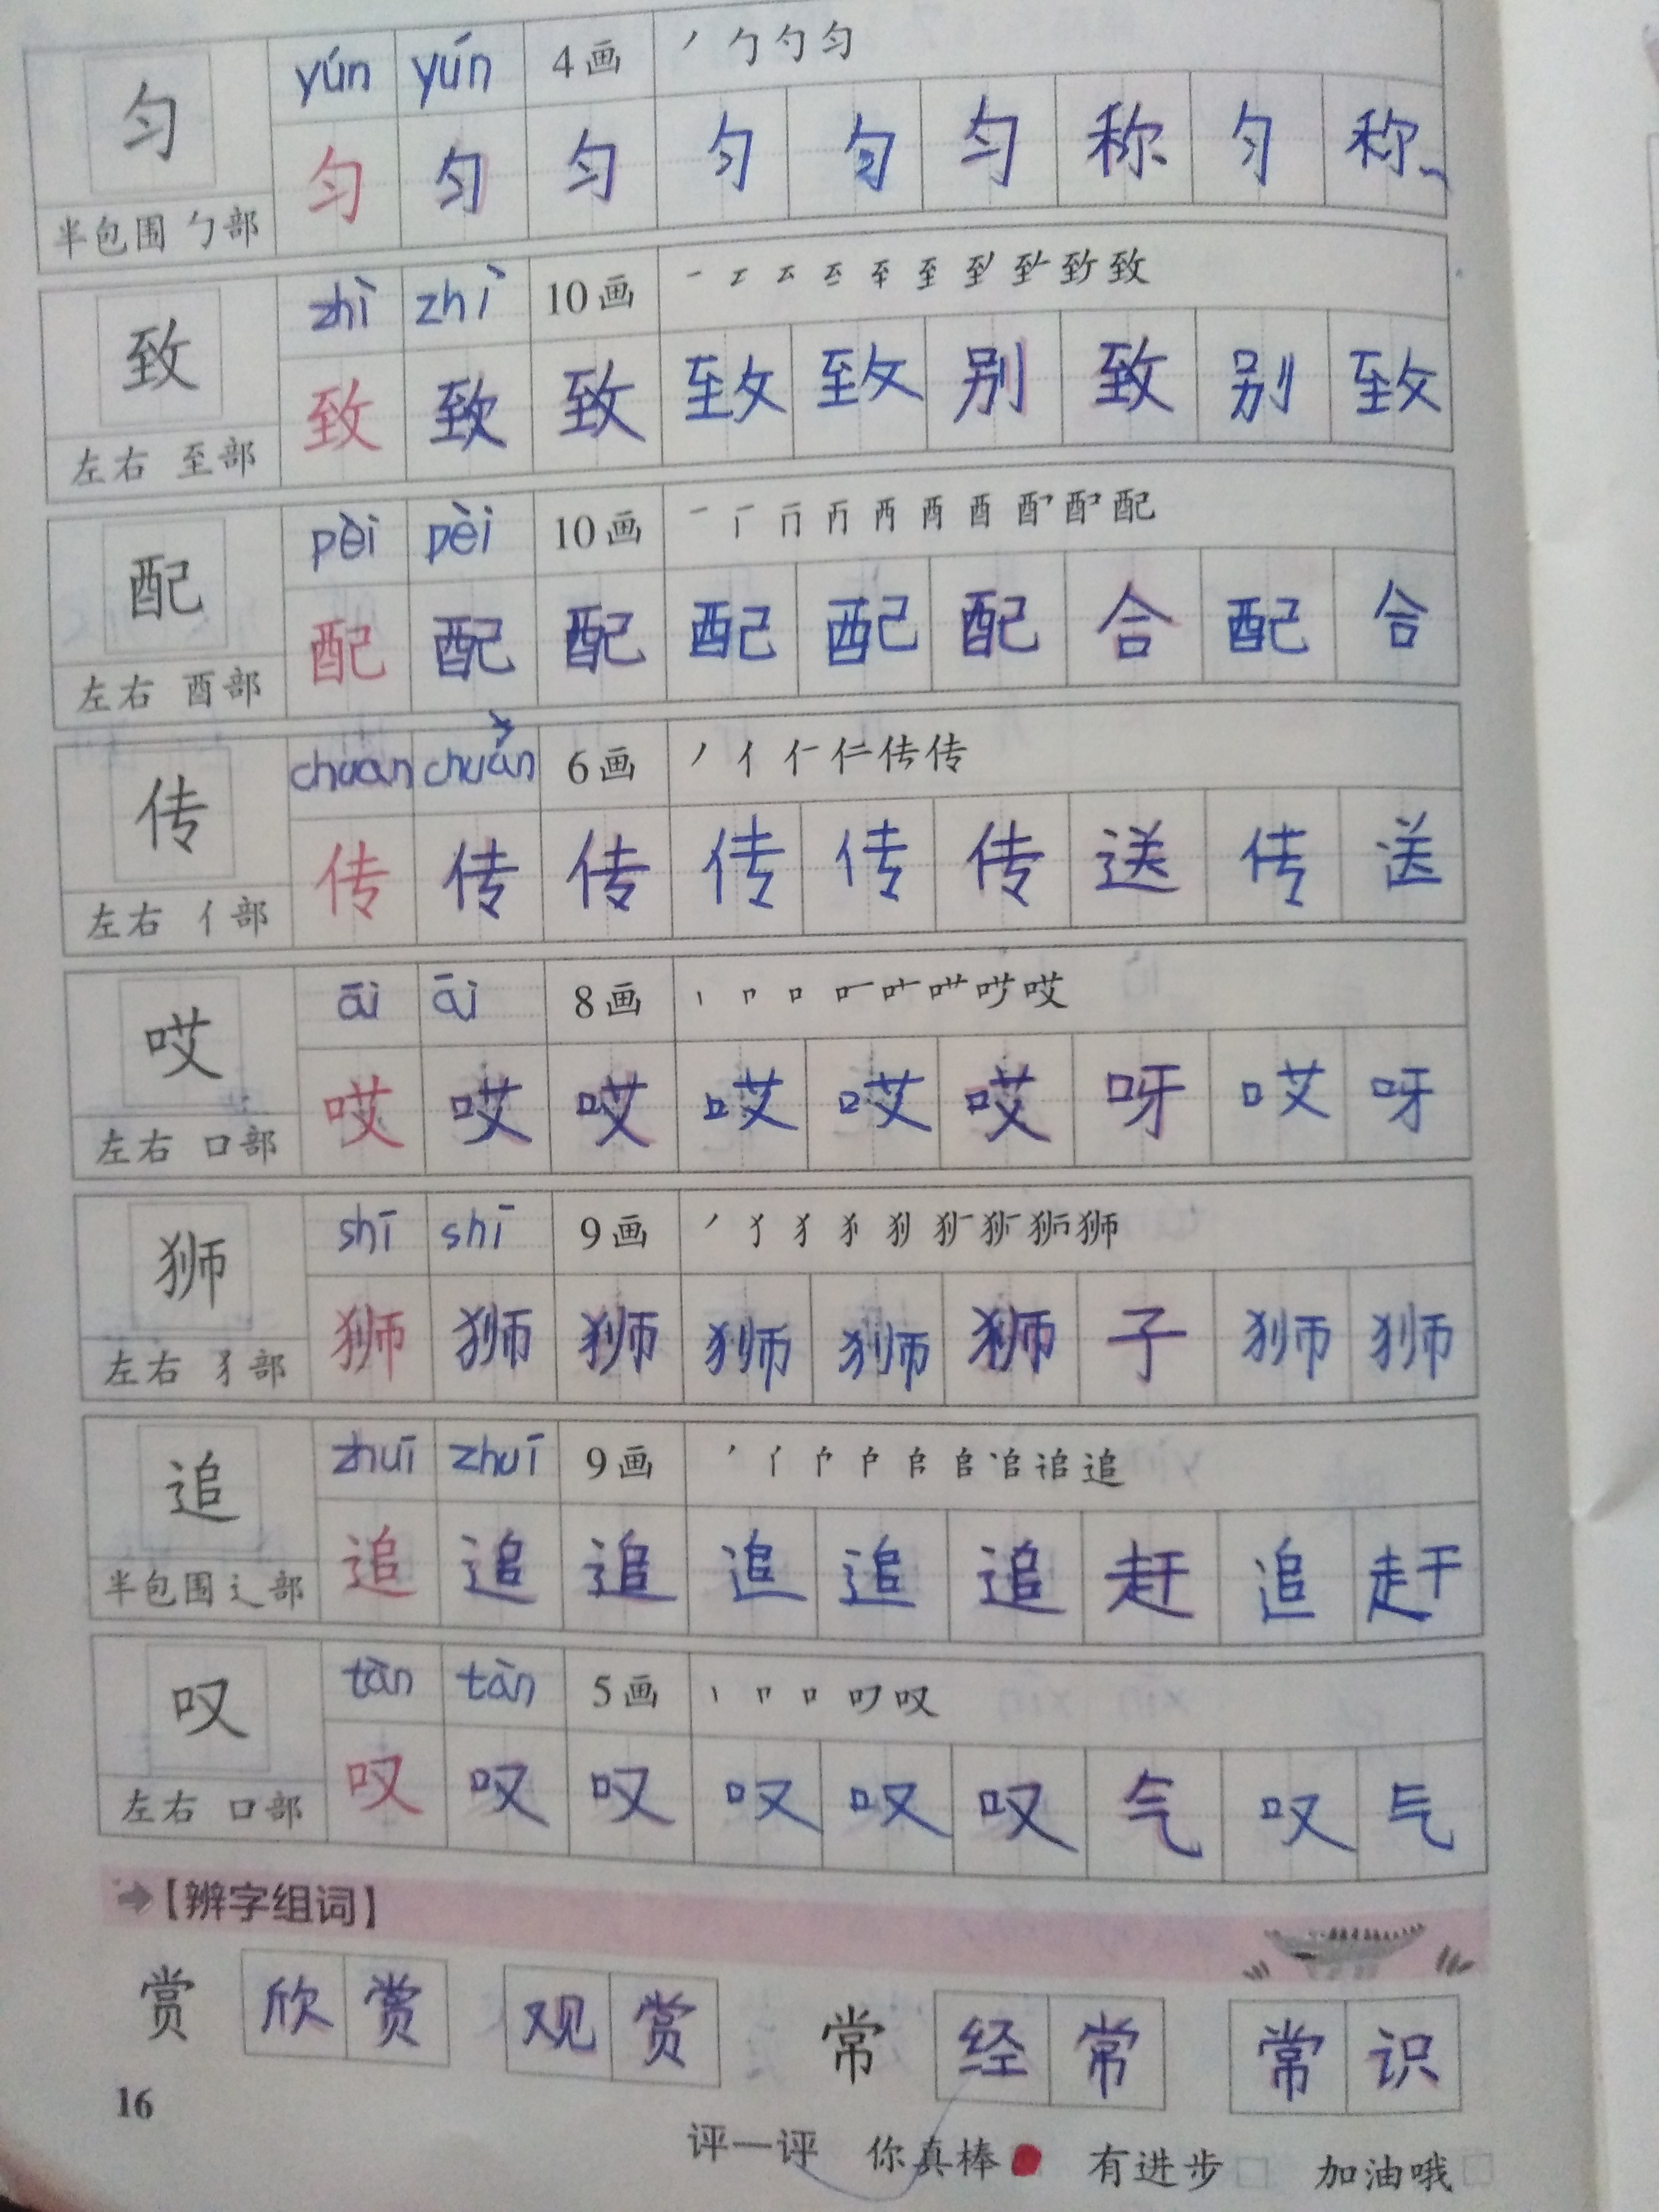 yún yún 4画 ノ 勹 勺 匀
匀
匀 匀 匀 匀 匀 匀 称 匀 称
半包围 勹部
zhì zhì 10画 致
致
致 致 致 致 致 别 致 别 致
左右 至部
pèi pèi 10画 一 丆 西 酉 配
配
配 配 配 配 配 配 合 配 合
左右 酉部
chuan chuán 6画 ノ 亻 仁 传 传
传
传 传 传 传 传 传 送 传 送
左右 亻部
āi āi 8画 丨 口 哎
哎
哎 哎 哎 哎 哎 哎 呀 哎 呀
左右 口部
shī shī 9画 ノ 犭 狮
狮
狮 狮 狮 狮 狮 狮 子 狮 狮
左右 犭部
zhuī zhuī 9画 追
追
追 追 追 追 追 追 赶 追 赶
半包围 辶部
tàn tàn 5画 丨 口 叨 叹
叹
叹 叹 叹 叹 叹 叹 气 叹 气
左右 口部
【辨字组词】
赏 欣赏 观赏 常 经常 常识
16
评一评 你真棒 有进步 加油哦